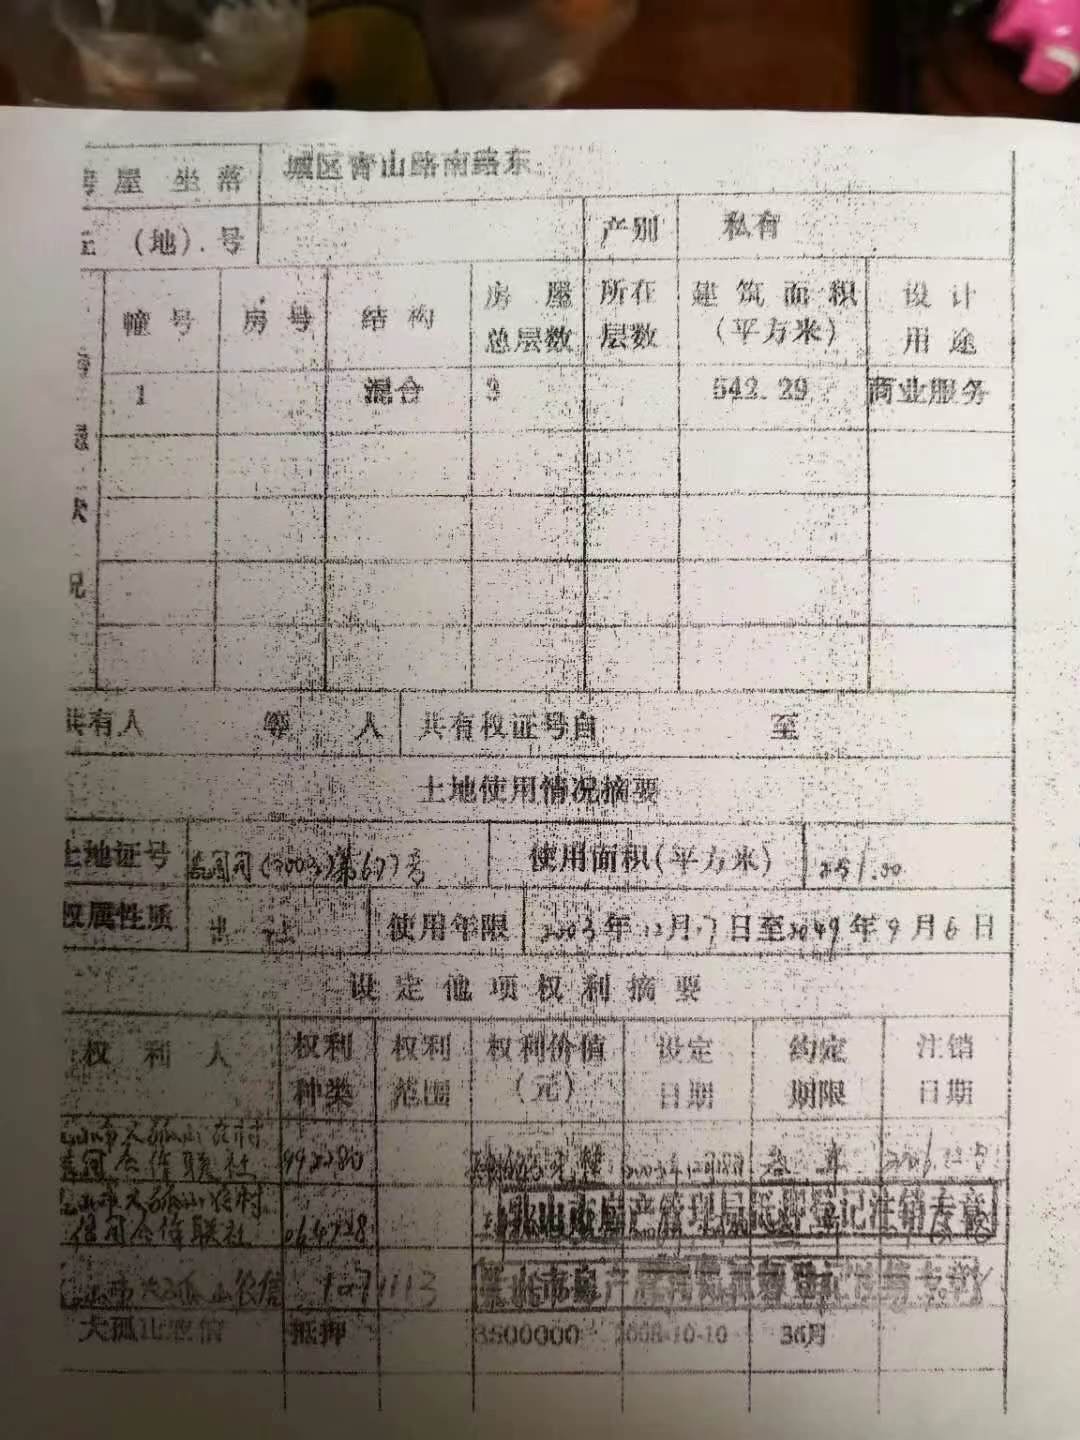 屋 坐 落 城区青山路南路东
(地) 号 产别 私有
幢 号 房 号 结 构 房 屋 总层数 所在层数 建 筑 面 积 (平方米) 设 计 用 途
1 混合 3 542.29 商业服务
况
共有人 等 人 共有权证号自 至
土地使用情况摘要
土地证号 使用面积(平方米)
权属性质 出 使用年限 2003年12月17日至2049年9月6日
设 定 他 项 权 利 摘 要
权 利 人 权利种类 权利范围 权利价值(元) 设定日期 约定期限 注销日期
大孤山农村
信用合作联社 992280 叁 年
大孤山农村
信用合作联社 064728 乳山市房产管理局抵押登记注销专章
大孤山农信 1071113
大孤山农信 抵押 3500000 2008-10-10 36月